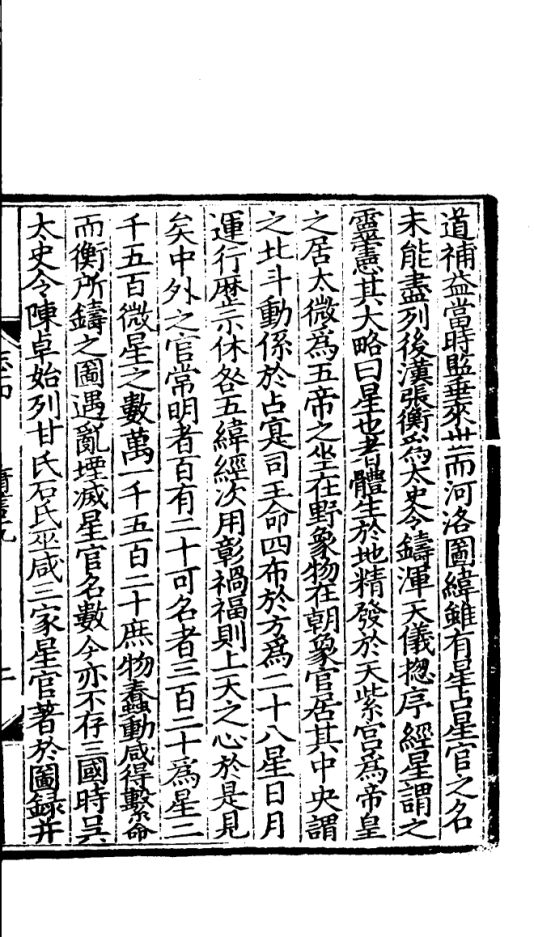 道補益當時監垂來世而河洛圖緯雖有星占星官之名
未能盡列後漢張衡爲太史令鑄渾天儀揔序經星謂之
靈憲其大略曰星也者體生於地精發於天紫宮爲帝皇
之居太微爲五帝之坐在野象物在朝象官居其中央謂
之北斗動係於占寔司王命四布於方爲二十八星日月
運行歷示休咎五緯經次用彰禍福則上天之心於是見
矣中外之官常明者百有二十可名者三百二十爲星二
千五百微星之數萬一千五百二十庶物蠢動咸得繫命
而衡所鑄之圖遇亂堙滅星官名數今亦不存三國時吳
太史令陳卓始列甘氏石氏巫咸三家星官著於圖録并